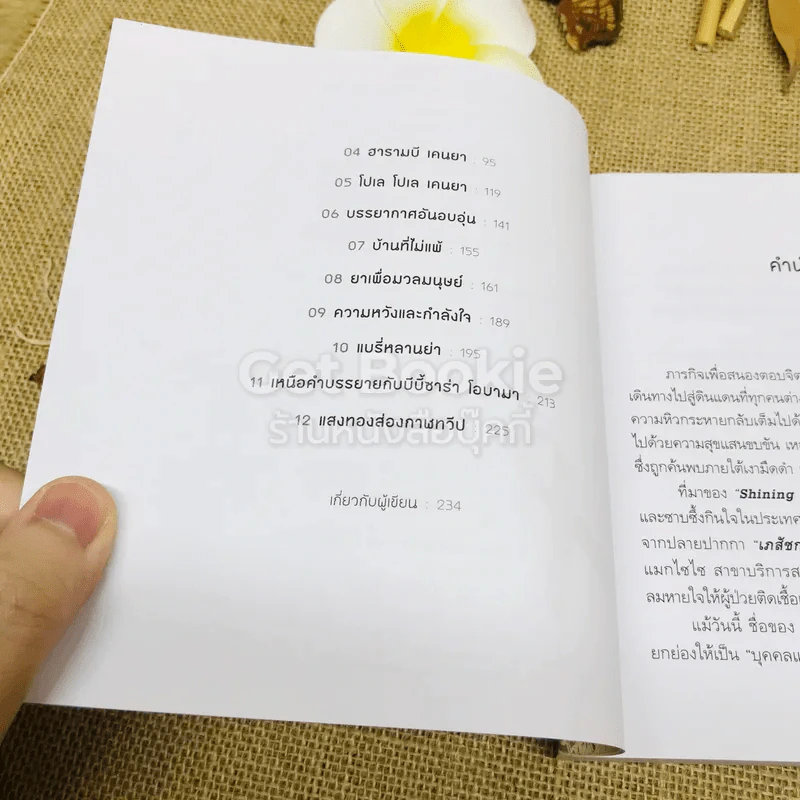 04 ฮารามบี เคนยา : 95
05 โปเล โปเล เคนยา : 119
06 บรรยากาศอันอบอุ่น : 141
07 บ้านที่ไม่แพ้ : 155
08 ยาเพื่อมวลมนุษย์ : 161
09 ความหวังและกำลังใจ : 189
10 แบรี่หลานย่า : 195
11 เหนือคำบรรยายกับบีบี้ซาร่า โอบามา : 213
12 แสงทองส่องกาฬทวีป : 225
เกี่ยวกับผู้เขียน : 234
Get Bookie
ร้านหนังสือบุ๊คกี้
ภารกิจเพื่อสนองตอบจิต
เดินทางไปสู่ดินแดนที่ทุกคนต่าง
ความหิวกระหายกลับเต็มไปด้
ไปด้วยความสุขแสนขบขัน เห
ซึ่งถูกค้นพบภายใต้เงามืดดำ
ที่มาของ "Shining
และซาบซึ้งกินใจในประเทศ
จากปลายปากกา "เภสัชก
แมกไซไซ สาขาบริการส
ลมหายใจให้ผู้ป่วยติดเชื้อ
แม้วันนี้ ชื่อของ
ยกย่องให้เป็น "บุคคลแ